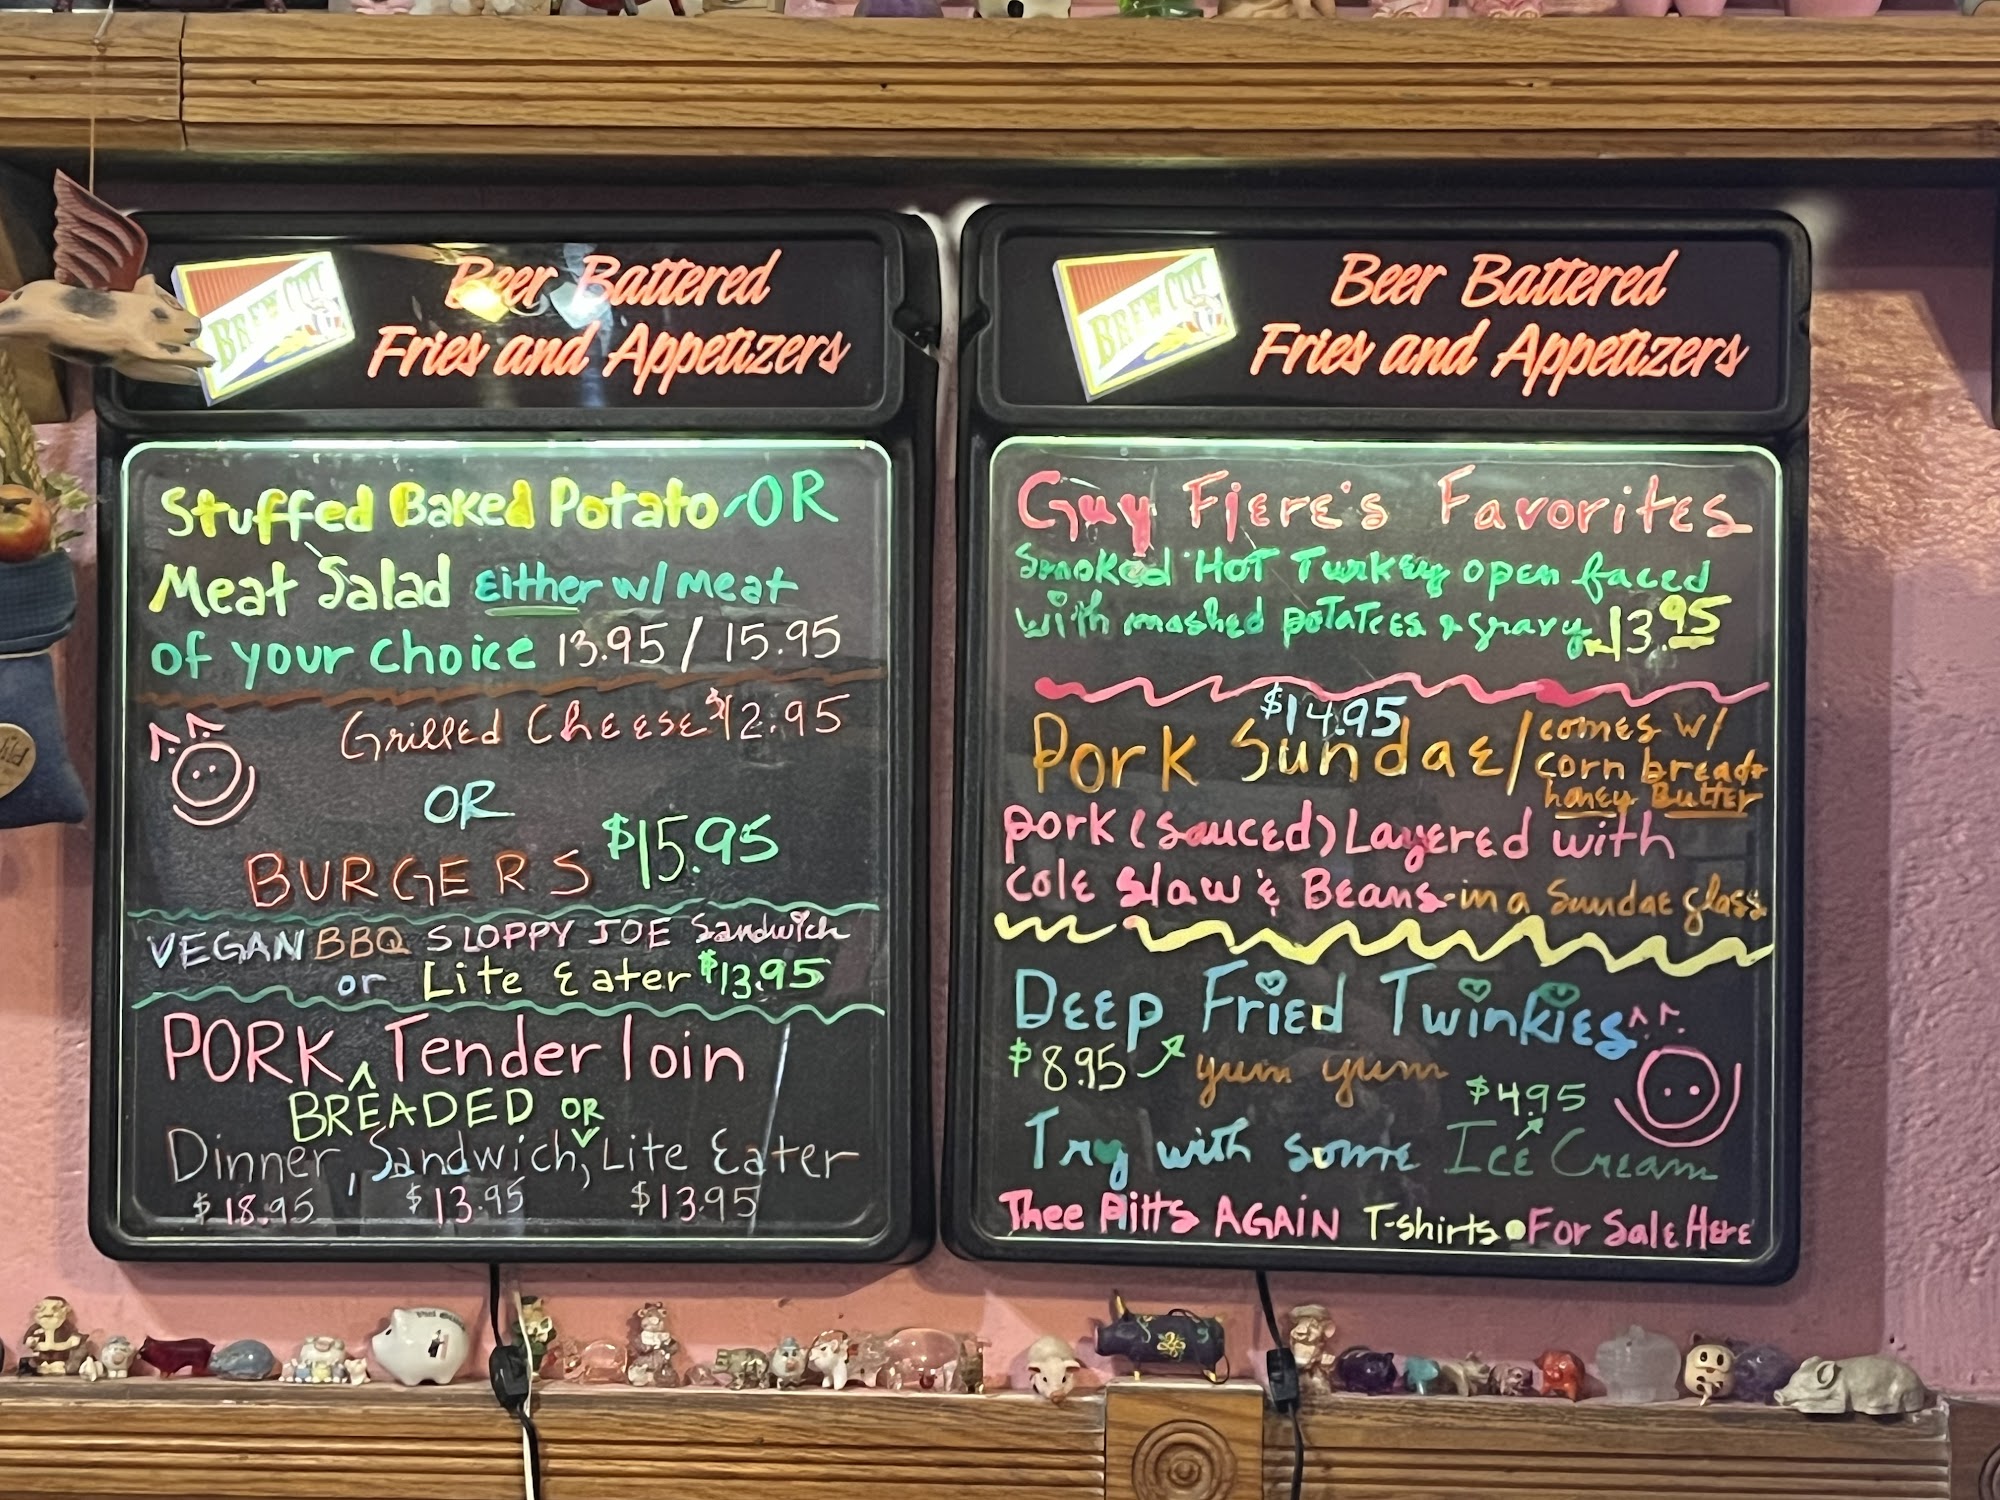 BREW CITY
Beer Battered
Fries and Appetizers
Stuffed Baked Potato-OR
Meat Salad either w/meat
of your choice 13.95/15.95
Grilled Cheese $12.95
OR
BURGERS $15.95
VEGAN BBQ SLOPPY JOE Sandwich
or Lite Eater $13.95
PORK ^ Tenderloin
BREADED OR
Dinner, Sandwich, Lite Eater
$18.95 $13.95 $13.95
BREW CITY
Beer Battered
Fries and Appetizers
Guy Fiere's Favorites
Smoked Hot Turkey open faced
with mashed potatoes & gravy 13.95
$14.95
Pork Sundae/comes w/
corn bread &
honey Butter
pork (sauced) Layered with
cole slaw & Beans-in a Sundae glass
Deep Fried Twinkies
$8.95 yum yum
$4.95
Try with some Ice Cream
Thee Pitts AGAIN T-shirts•For Sale Here